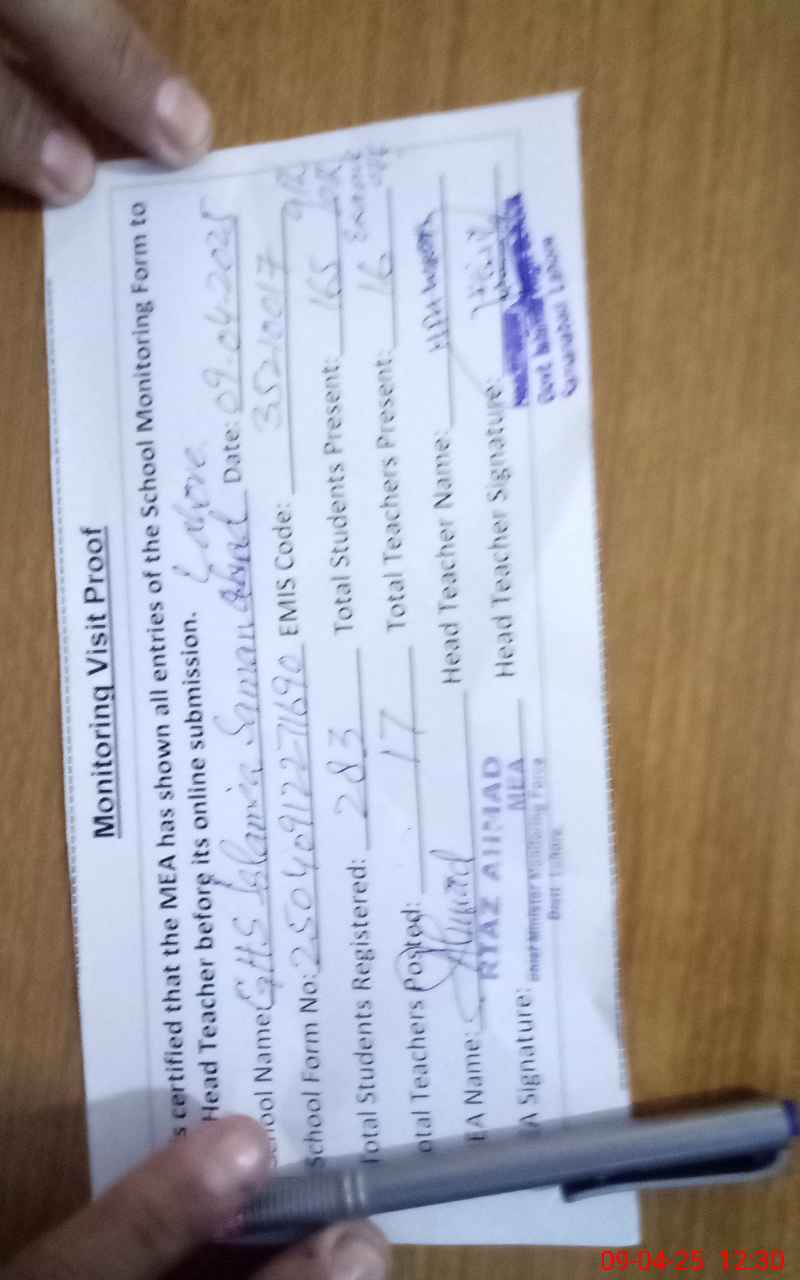 Monitoring Visit Proof
s certified that the MEA has shown all entries of the School Monitoring Form to
Head Teacher before its online submission.
Lahore
School Name: GHS Islamia Saman abad Date: 09-04-2025
School Form No: 25040912271690 EMIS Code: 35210017
Total Students Registered: 283 Total Students Present: 165
otal Teachers Posted: 17 Total Teachers Present: 16
EA Name: Ahmad Head Teacher Name:
RIAZ AHMAD
A Signature: MEA Head Teacher Signature:
Chief Minister Monitoring Force
Distt: Lahore
Govt
Samanabad Lahore
09-04-25 12:30